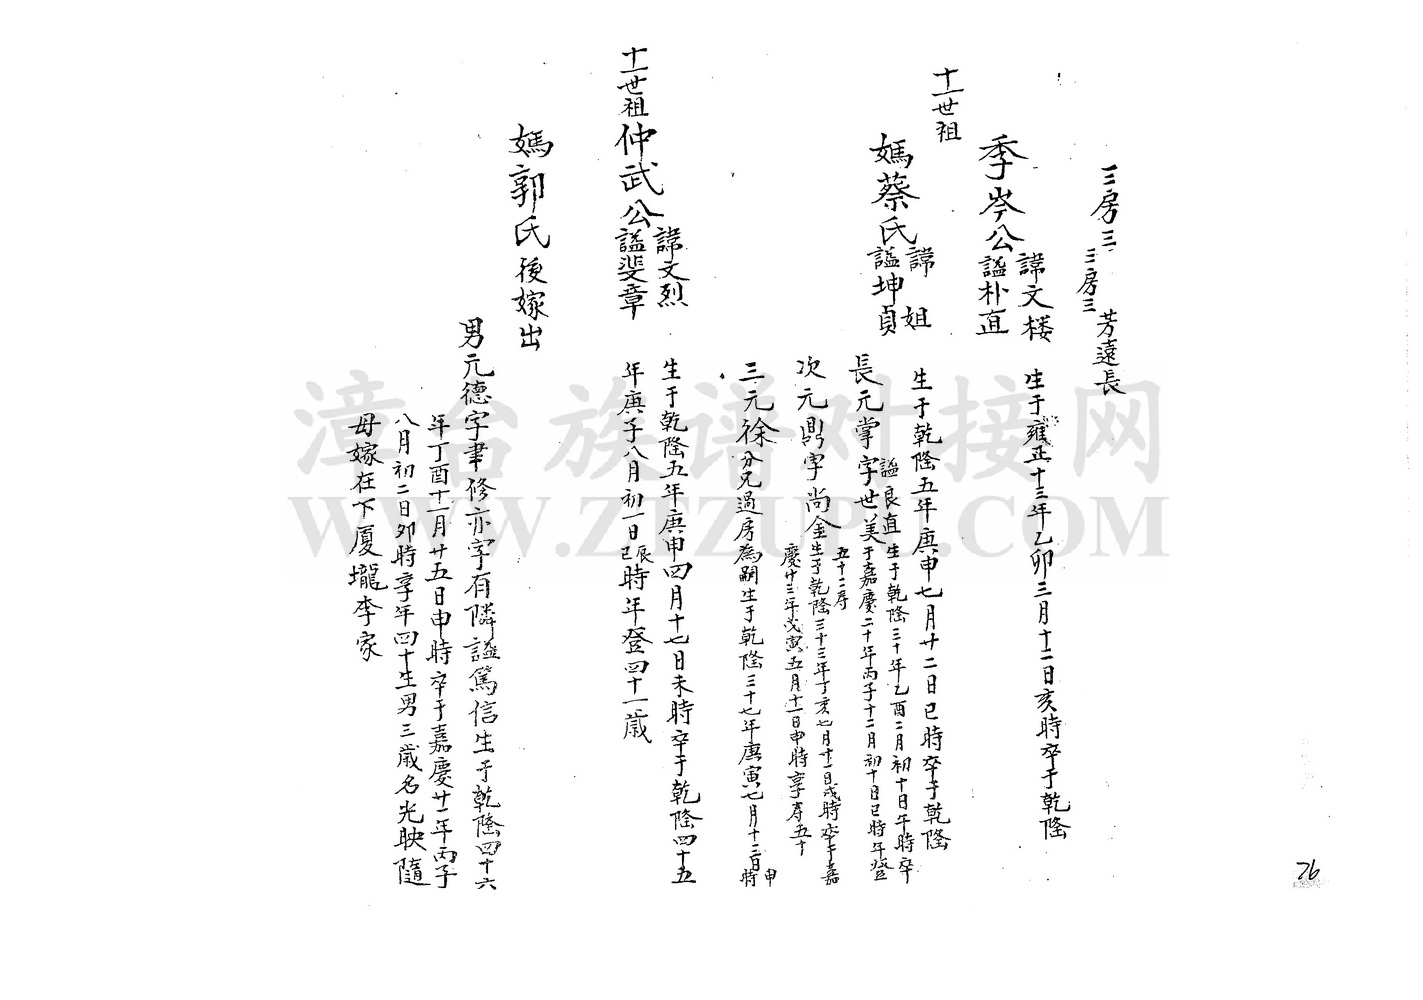 三房三
三房三
芳遠長
十一世祖
季岑公
諱文楼
謚朴直
生于雍正十三年乙卯三月十二日亥時卒于乾隆
媽蔡氏
諱 姐
謚坤貞
生于乾隆五年庚申七月廿二日巳時卒于乾隆
長元掌字世美
謚良直
生于乾隆三十年乙酉二月初十日午時卒
于嘉慶二十年丙子十二月初十日巳時年登
五十二寿
次元鼎字尚金
生于乾隆三十三年丁亥七月十一日戌時卒于嘉
慶廿三年戊寅五月十一日申時享寿五十
三元徐分兄過房為嗣生于乾隆三十七年庚寅七月十三日申時
十一世祖
仲武公
諱文烈
謚斐章
生于乾隆五年庚申四月十七日未時卒于乾隆四十五
年庚子八月初一日辰巳時年登四十一歳
媽郭氏後嫁出
男元德字聿修亦字有隣謚篤信生于乾隆四十六
年丁酉十一月廿五日申時卒于嘉慶廿一年丙子
八月初二日卯時享年四十生男三歳名光映隨
母嫁在下厦壠李家
26
漳台族谱对接网
WWW.ZTZUPU.COM